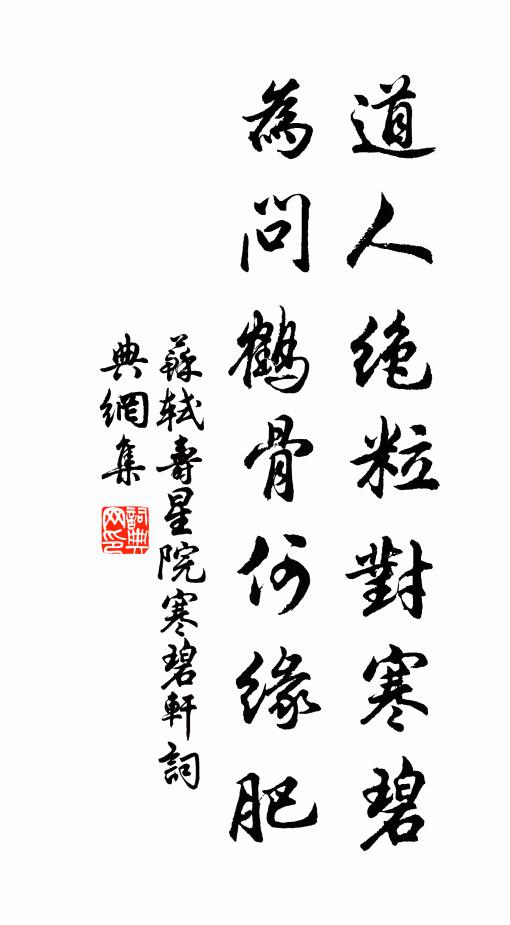 道人绝粒對寒碧
為問鶴骨何缘肥
蘇軾壽星院寒碧軒詞
典網集
詞典
网印